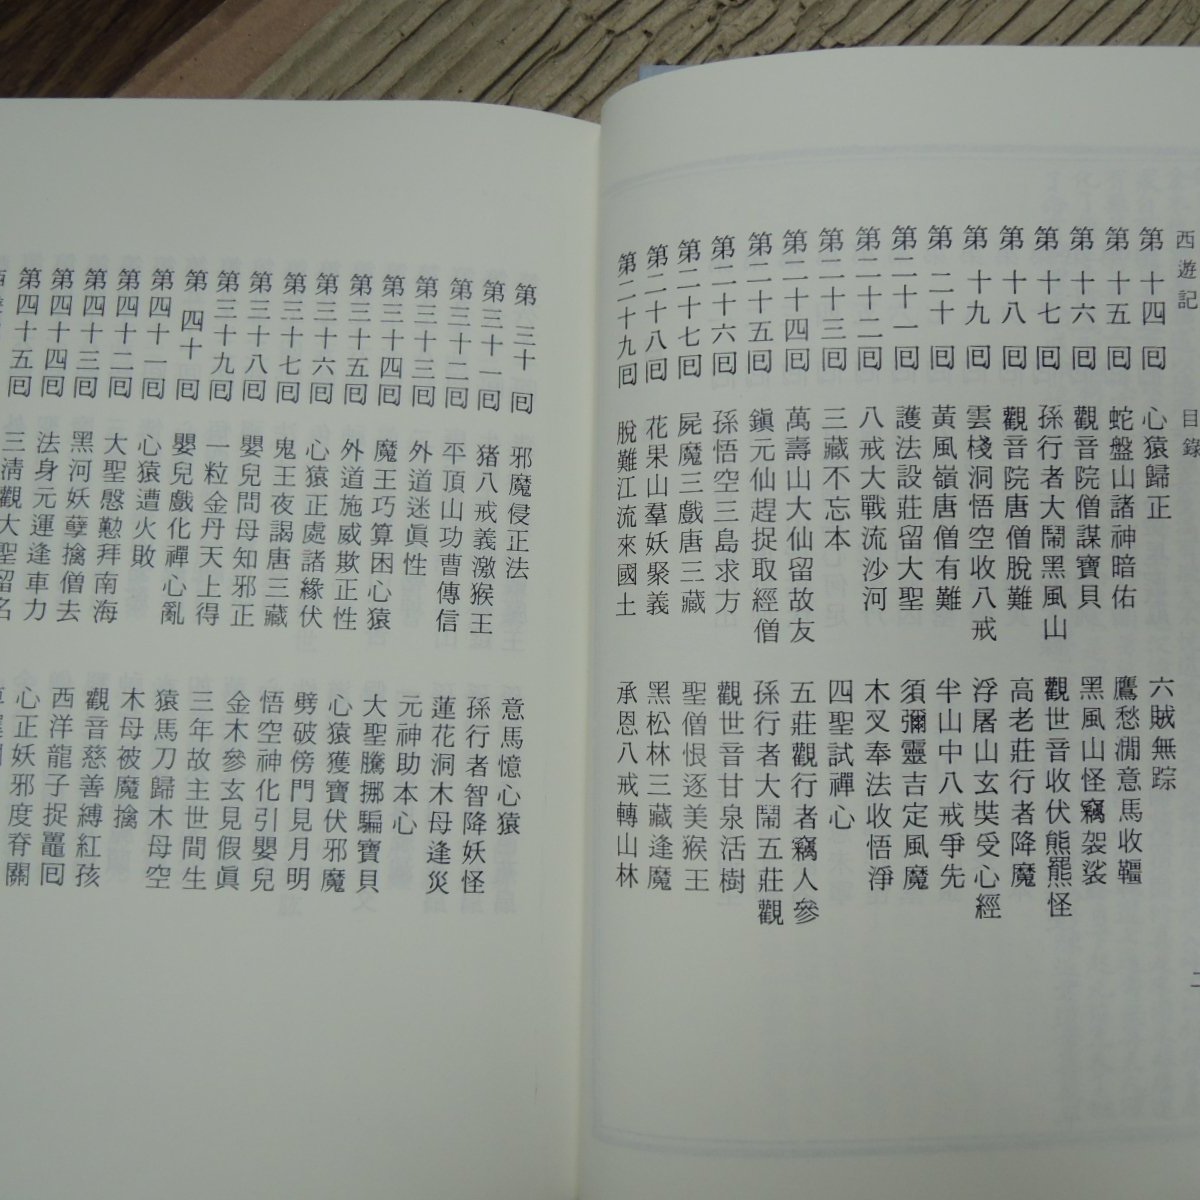 西遊記 目錄
第十四回 心猿歸正 六賊無踪
第十五回 蛇盤山諸神暗佑 鷹愁澗意馬收韁
第十六回 觀音院僧謀寶貝 黑風山怪竊袈裟
第十七回 孫行者大鬧黑風山 觀世音收伏熊羆怪
第十八回 觀音院唐僧脫難 高老莊行者降魔
第十九回 雲棧洞悟空收八戒 浮屠山玄奘受心經
第二十回 黃風嶺唐僧有難 半山中八戒爭先
第二十一回 護法設莊留大聖 須彌靈吉定風魔
第二十二回 八戒大戰流沙河 木叉奉法收悟淨
第二十三回 三藏不忘本 四聖試禪心
第二十四回 萬壽山大仙留故友 五莊觀行者竊人參
第二十五回 鎭元仙趕捉取經僧 孫行者大鬧五莊觀
第二十六回 孫悟空三島求方 觀世音甘泉活樹
第二十七回 屍魔三戲唐三藏 聖僧恨逐美猴王
第二十八回 花果山羣妖聚義 黑松林三藏逢魔
第二十九回 脫難江流來國土 承恩八戒轉山林
第三十回 邪魔侵正法 意馬憶心猿
第三十一回 猪八戒義激猴王 孫行者智降妖怪
第三十二回 平頂山功曹傳信 蓮花洞木母逢災
第三十三回 外道迷眞性 元神助本心
第三十四回 魔王巧算困心猿 大聖騰挪騙寶貝
第三十五回 外道施威欺正性 心猿獲寶伏邪魔
第三十六回 心猿正處諸緣伏 劈破傍門見月明
第三十七回 鬼王夜謁唐三藏 悟空神化引嬰兒
第三十八回 嬰兒問母知邪正 金木參玄見假眞
第三十九回 一粒金丹天上得 三年故主世間生
第四十回 嬰兒戲化禪心亂 猿馬刀歸木母空
第四十一回 心猿遭火敗 木母被魔擒
第四十二回 大聖慇懃拜南海 觀音慈善縛紅孩
第四十三回 黑河妖孽擒僧去 西洋龍子捉鼉回
第四十四回 法身元運逢車力 心正妖邪度脊關
第四十五回 三淸觀大聖留名